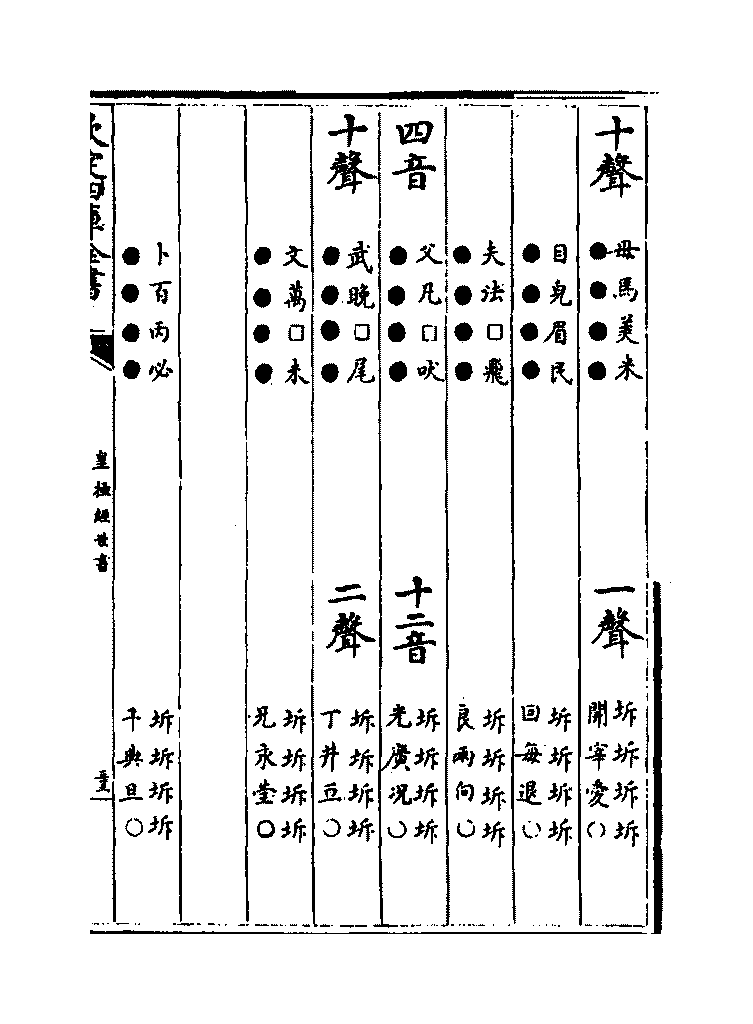 十聲
母馬美米
●●●●
一聲
坼坼坼坼
開宰愛○
目皃眉民
●●●●
坼坼坼坼
回每退○
夫法□飛
●●●●
坼坼坼坼
良兩向○
四音
父凡□吠
●●●●
十二音
坼坼坼坼
光廣况○
十聲
武晚□尾
●●●●
二聲
坼坼坼坼
丁井亘○
文萬□未
●●●●
坼坼坼坼
兄永瑩○
卜百丙必
●●●●
坼坼坼坼
千典旦○
欽定四庫全書
皇極經世書